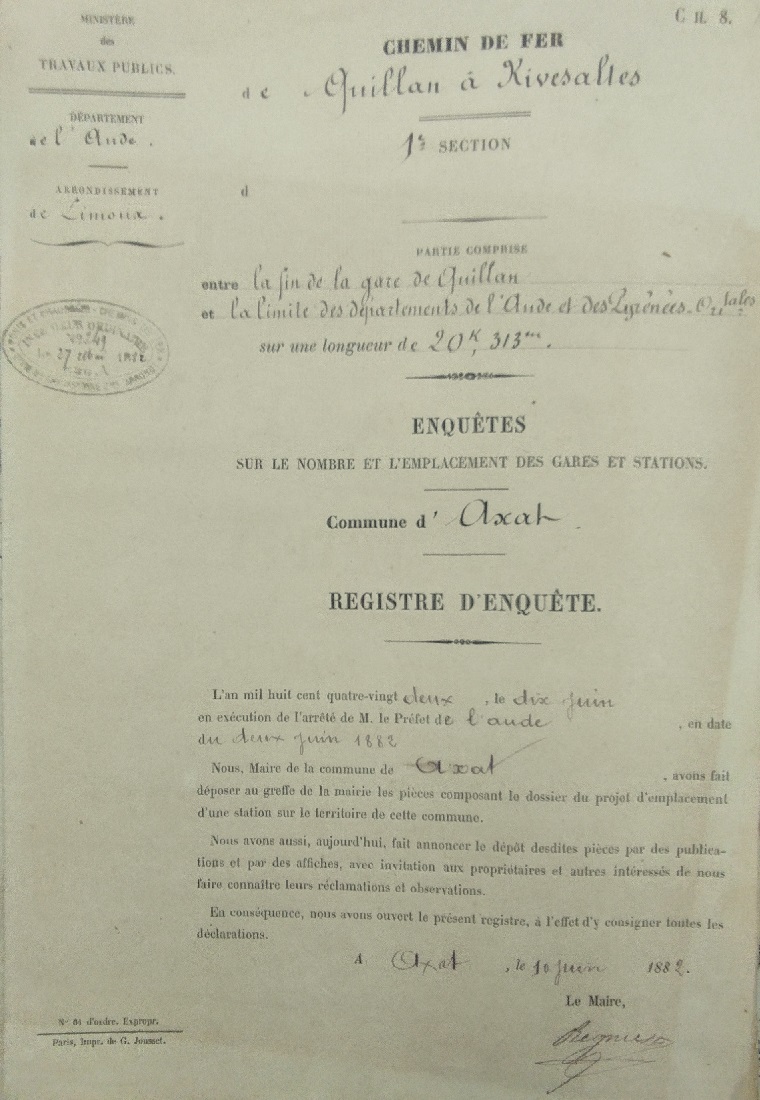 C n. 8.
MINISTÈRE
des
TRAVAUX PUBLICS.
DÉPARTEMENT
de l'Aude.
ARRONDISSEMENT
de Limoux.
CHEMIN DE FER
de Quillan à Rivesaltes
1re SECTION
d
PARTIE COMPRISE
entre la fin de la gare de Quillan
et la limite des départements de l'Aude et des Pyrénées-Ortales
sur une longueur de 20K, 313m.
27
ENQUÊTES
SUR LE NOMBRE ET L'EMPLACEMENT DES GARES ET STATIONS.
Commune d' Axat.
REGISTRE D'ENQUÊTE.
L'an mil huit cent quatre-vingt deux, le dix juin
en exécution de l'arrêté de M. le Préfet de l'aude, en date
du deux juin 1882
Nous, Maire de la commune de Axat, avons fait
déposer au greffe de la mairie les pièces composant le dossier du projet d'emplacement
d'une station sur le territoire de cette commune.
Nous avons aussi, aujourd'hui, fait annoncer le dépôt desdites pièces par des publica-
tions et par des affiches, avec invitation aux propriétaires et autres intéressés de nous
faire connaître leurs réclamations et observations.
En conséquence, nous avons ouvert le présent registre, à l'effet d'y consigner toutes les
déclarations.
A Axat, le 10 juin 1882.
Le Maire,
No 64 d'ordre. Expropr.
Paris, Impr. de G. Jousset.